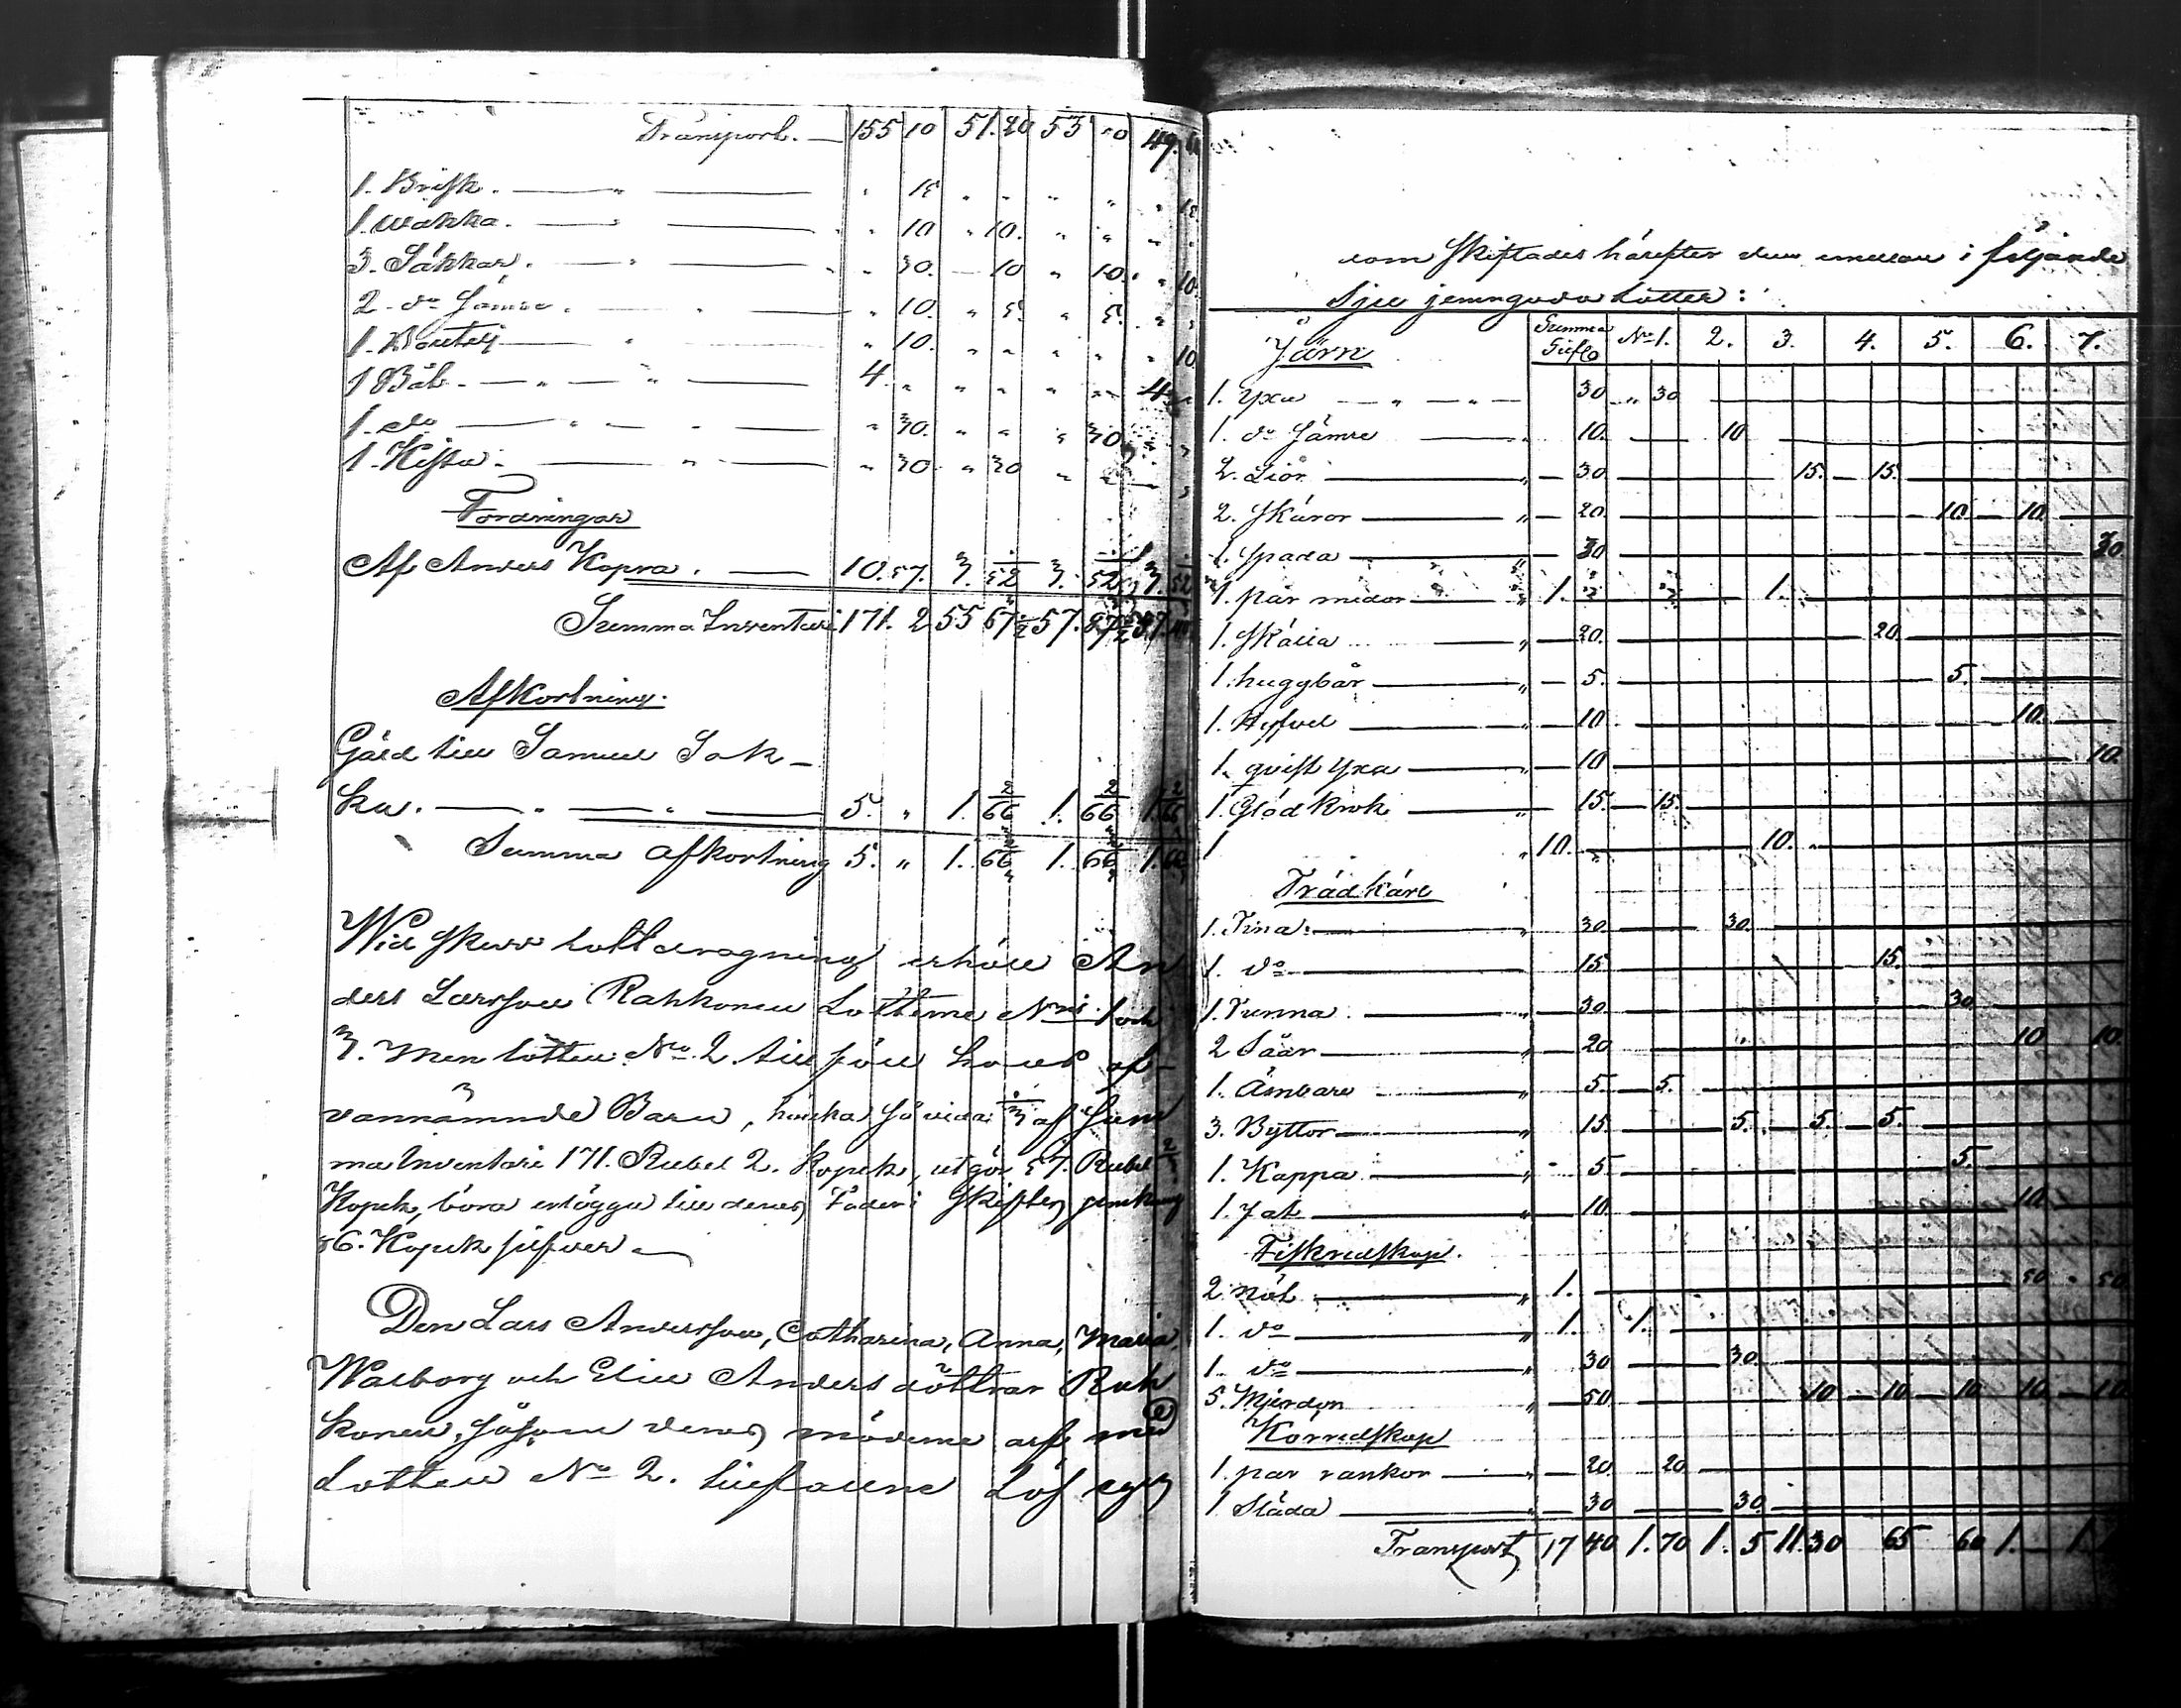 Transport. — 155 10 51. 20 53 40 49.
1. Brisk. — " — " 15 " " " " " 15
1. Wakka. — " — " 10 " 10. " " " "
3. Säkkar. — " — " 30. — 10 " 10. " 10.
2. do sämre. " " " 10. " 5. " 5. " "
1. " " 10. " " " " " 10
1 Båt. — " — " — 4. " " " " " 4. "
1. do — " — " — " 30. " " " 30. " "
1. Kista. — " — " 30 " 30 " " — "
Fordringar
Af Anders Kopra. — 10. 57. 3. 52 3. 52 3. 52
Summa Inventarii 171. 2 55 67 1/2 57. 87 1/2 57.
Afkortning.
Gäld till Samuel Sak-
ka. — " — " — 5. " 1. 66 2/3 1. 66 2/3 1. 66 2/3
Summa afkortning 5. " 1. 66 2/3 1. 66 2/3 1. 66
Wid skedd lottdragning erhöll An
ders Larsson Rahkonen Lotterne Nris 1 och
3. men lotten No 2. till föll hans of-
vannämnde Barn, hvilka så vida 1/3 af Sum
ma Inventarii 171. Rubel 2. Kopek, utgör 57. Rubel 2/3
Kopek, böra erlägga till deras Fader i Skiftes jemkning
56. Kopek silfver —
Den Lars Andersson, Catharina, Anna, Maria,
Walborg och Elin Anders döttrar Rah
konen, såsom deras möderne arf med
Lotten No 2. tillfallne Lös egen
som skiftades härefter dem emellan i följande
Sju jemngoda Lotter:
Järn Summa Silfv No 1. 2. 3. 4. 5. 6. 7.
1. Yxa — " — " — 30 " 30
1. do sämre — " 10. — 10
2. Liör — " — 30 — 15. — 15.
2. Skäror — " — 20. — 10 — 10.
1. Spada — " — 30 — 30
1. par medor — " 1. " — " 1.
1. Skälla — " — 20. — 20.
1. huggbår — " — 5. — 5.
1. Hyfvel — " — 10 — 10.
1. qvist yxa — " — 10 — 10.
1. Glödkrok — " — 15. — 15.
1 " 10. " — 10.
Trädkäril
1. Tina. — " 30. — 30.
1. do — " 15 — 15.
1. Tunna. — " — 30. — 30
2 Såår — " — 20. — 10 10.
1. Ämbare — " — 5. — 5.
3. Byttor — " 15. — 5. 5. — 5.
1. Kappa — " 5 — 5.
1. Fat — " — 10. — 10.
Fiskredskap.
2. nöt — " 1. — 50 " 50
1. do — " 1. 1.
1. do — " 30 — 30.
5. Mjerdor " — 50. 10 — 10 — 10 10 — 10
Körredskap
1. par rankor — " — 20. 20.
1 Släda — " — 30 — 30.
Transport 17 40 1. 70 1. 5 11 30 65 60 1. — 1.